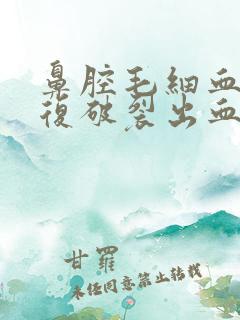 鼻腔毛細血
復破裂出血
甘羅
未經同意禁止轉載